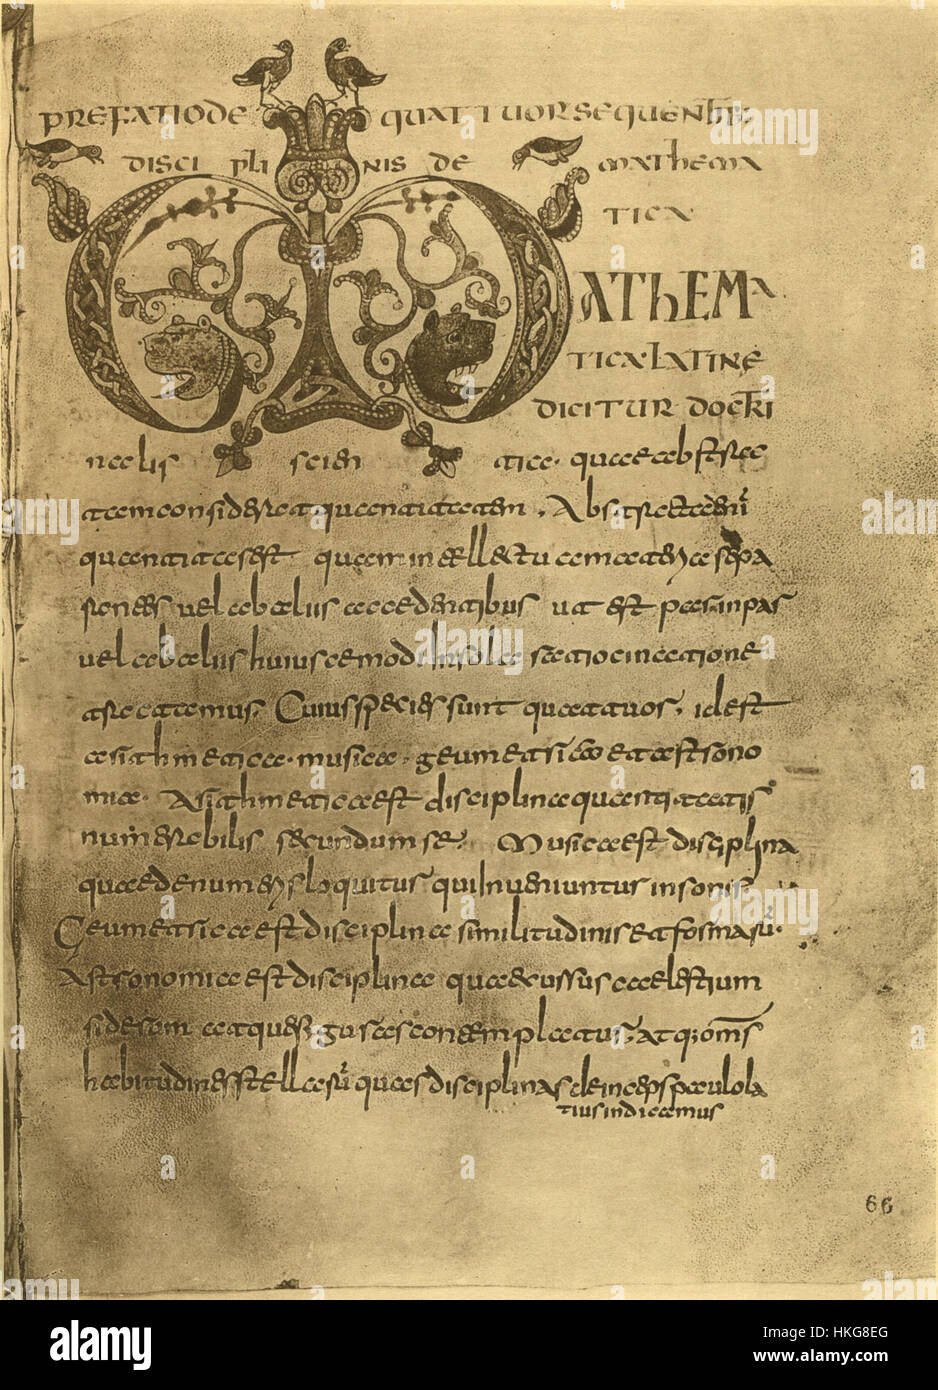 PREFATIO DE QUATTUOR SEQUENTIB;
DISCIPLINIS DE MATHEMA
TICA
MATHEMA
TICA LATINE
DICITUR DOCTRI
nalis scien tia. quae abstrac
tam considerat quantitatem. Abstracta enī
quantitas est quam intellectu a materia sepa
rantes vel ab aliis accidentibus ut est par. inpar
vel ab aliis huiuscemodi In sola ratiocinatione
tractamus. Cuius species sunt quattuor. id est
arithmetica. musica. geumetrica et astrono
mica. Arithmetica est disciplina quantitatis
numerabilis secundum se. Musica est disciplina
quae de numeris loquitur qui Inveniuntur in sonis
Geumetrica est disciplina similitudinis et formarū.
Astronomica est disciplina quae cursus caelestium
siderum atque figuras contemplatur. atq; omēs
habitudines stellarū quas disciplinas deinceps paulo la
tius indicemus
66
alamy
Image ID: HKG8EG
www.alamy.com